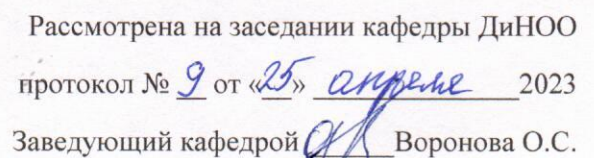 Рассмотрена на заседании кафедры ДиНОО
протокол № 9 от «25» апреля 2023
Заведующий кафедрой Воронова О.С.